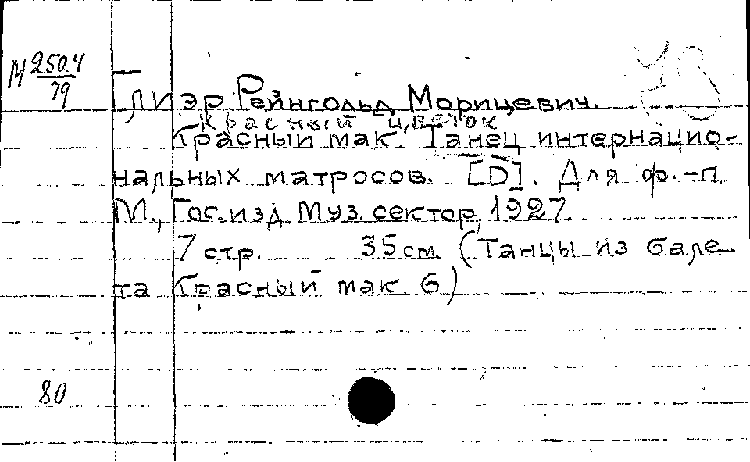 М 250.4
79
Глиэр Рейнгольд Морицевич.
Красный цветок
Красный мак. Танец интернацио-
нальных матросов. [D]. Для ф.-п.
М., Гос. изд. Муз. сектор, 1927.
7 стр. 35 см. (Танцы из бале-
та Красный мак 6)
80